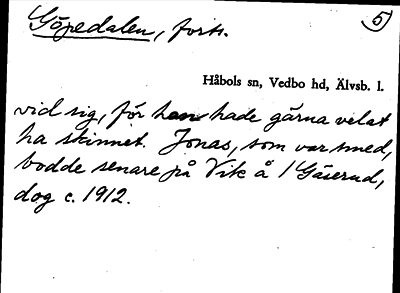 Göpedalen, forts. 5
Håbols sn, Vedbo hd, Älvsb. l.
vid sig, för han hade gärna velat
ha skinnet. Jonas, som var smed,
bodde senare på Vik å / Gäserud,
dog c. 1912.